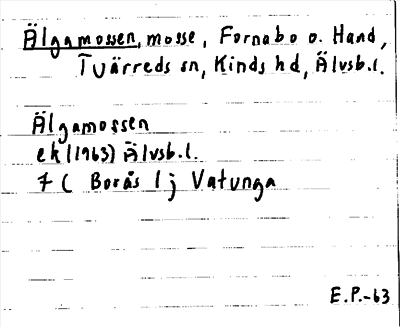 Älgamossen, mosse, Fornabo o. Hand,
Tvärreds sn, Kinds hd, Älvsb.l.
Älgamossen
ek (1963) Älvsb.l.
7 C Borås 1 j Vatunga
E.P.-63